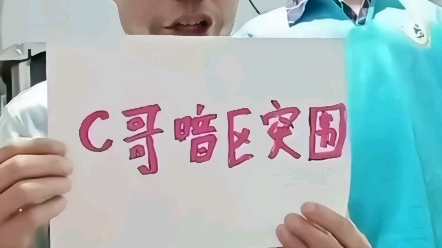 C哥暗区突围